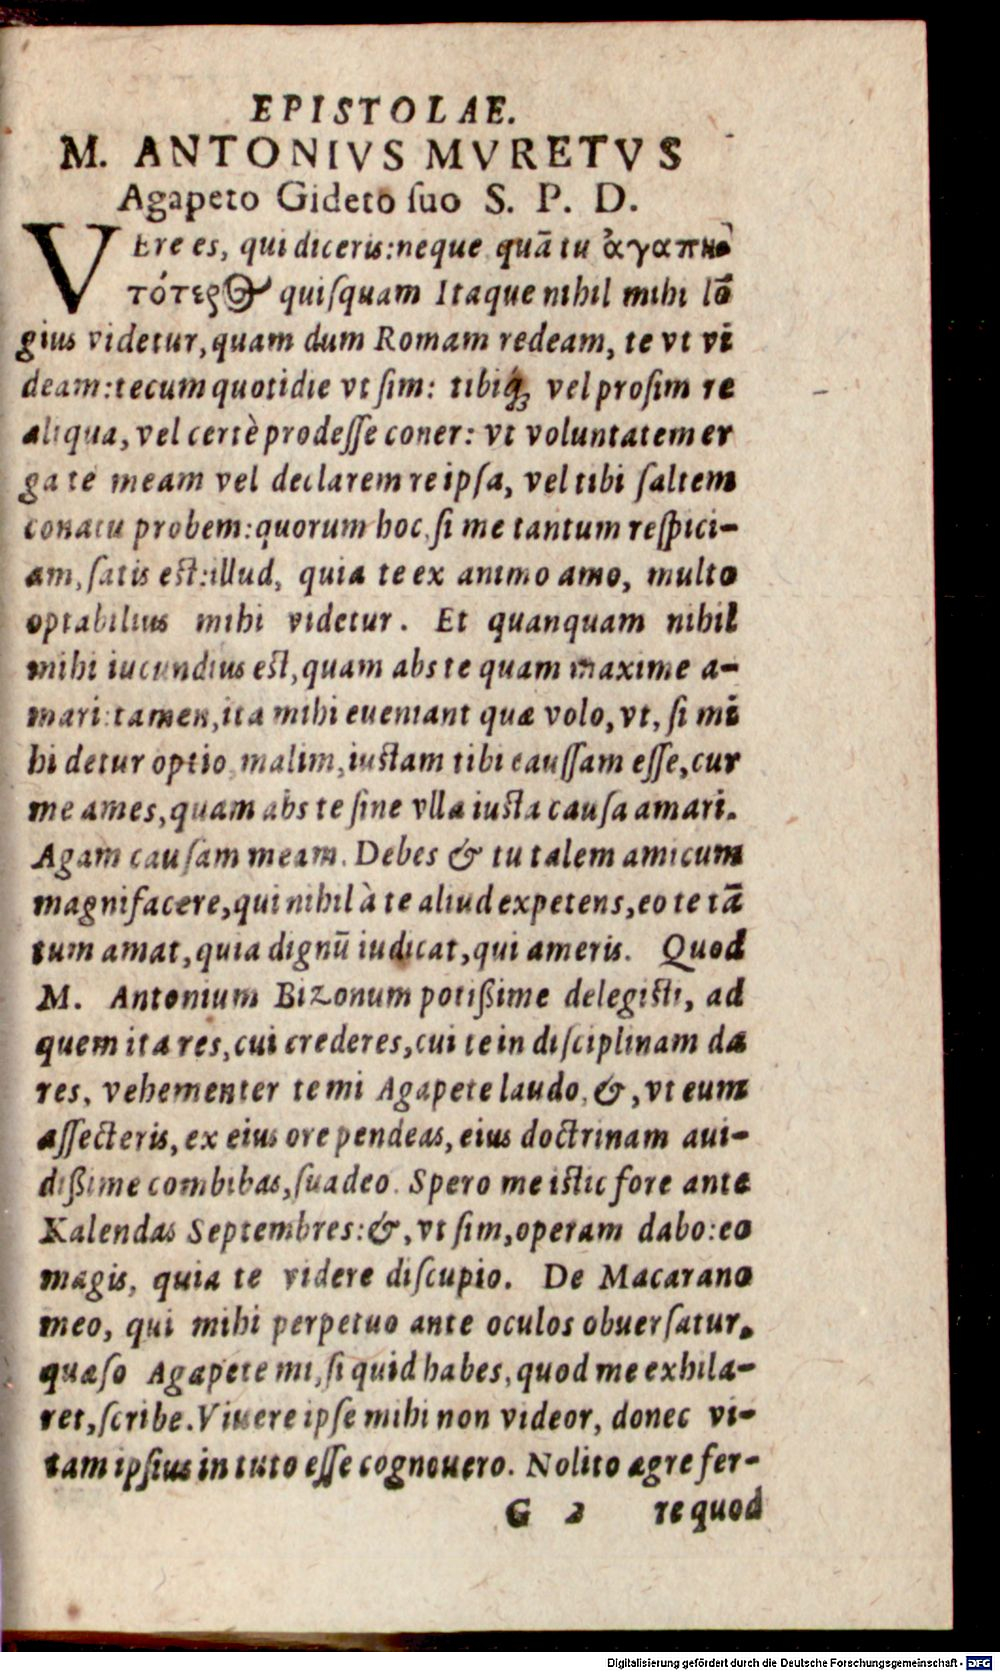 EPISTOLAE.
M. ANTONIVS MVRETVS
Agapeto Gideto ſuo S. P. D.
VEre es, qui diceris: neque quā tu ἀγαπη
τότερος quiſquam Itaque nihil mihi lō
gius videtur, quam dum Romam redeam, te vt vi
deam: tecum quotidie vt ſim: tibiq; vel proſim re
aliqua, vel certè prodeſſe coner: vt voluntatem er
ga te meam vel declarem re ipſa, vel tibi ſaltem
conatu probem: quorum hoc, ſi me tantum reſpici-
am, ſatis eſt: illud, quia te ex animo amo, multo
optabilius mihi videtur. Et quanquam nihil
mihi iucundius eſt, quam abs te quam maxime a-
mari: tamen, ita mihi eueniant quæ volo, vt, ſi mi
hi detur optio, malim, iuſtam tibi cauſſam eſſe, cur
me ames, quam abs te ſine vlla iuſta cauſa amari.
Agam cauſam meam. Debes & tu talem amicum
magnifacere, qui nihil à te aliud expetens, eo te tā
tum amat, quia dignū iudicat, qui ameris. Quod
M. Antonium Bizonum potißime delegiſti, ad
quem ita res, cui crederes, cui te in diſciplinam da
res, vehementer te mi Agapete laudo, &, vt eum
aſſecteris, ex eius ore pendeas, eius doctrinam aui-
dißime combibas, ſuadeo. Spero me iſtic fore ante
Kalendas Septembres: &, vt ſim, operam dabo: eo
magis, quia te videre diſcupio. De Macarano
meo, qui mihi perpetuo ante oculos obuerſatur,
quæſo Agapete mi, ſi quid habes, quod me exhila-
ret, ſcribe. Viuere ipſe mihi non videor, donec vi-
tam ipſius in tuto eſſe cognouero. Nolito ægre fer-
G 2 re quod
Digitalisierung gefördert durch die Deutsche Forschungsgemeinschaft - DFG